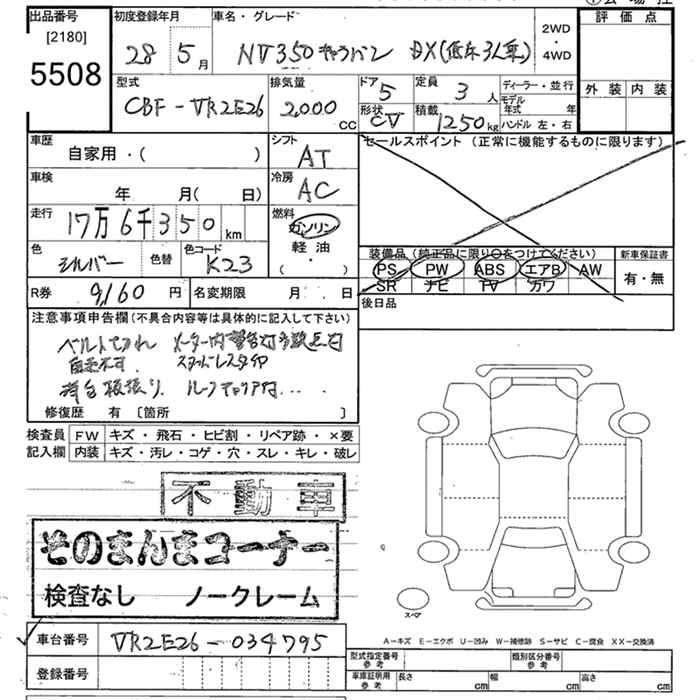 出品番号 初度登録年月 車名・グレード 2WD ・ 4WD 評価点
[2180]
5508 28 5月 NV350キャラバン DX(低床3人乗)
型式 排気量 ドア 定員 ディーラー・並行 外装 内装
CBF-VR2E26 2,000 CC 5 3人 モデル年式 年
形状 積載 ハンドル 左・右
CV 1250kg
車歴 シフト セールスポイント(正常に機能するものに限ります)
自家用・( ) AT
車検 冷房
年 月( 日) AC
走行 燃料
17万6千350km ガソリン
軽油
( ・ )
色 色替 色コード 装備品(純正品に限り○をつけてください) 新車保証書
シルバー K23 PS PW ABS エアB AW 有・無
SR ナビ TV カワ
R券 9,160円 名変期限 月 日 後日品
注意事項申告欄(不具合内容等は具体的に記入して下さい)
ベルト メーター内警告灯多数点灯
自走不可. スタッドレスタイヤ
荷台板張り. ルーフキャリア付.....
修復歴 有 [箇所 ]
検査員 FW キズ・飛石・ヒビ割・リペア跡・×要
記入欄 内装 キズ・汚レ・コゲ・穴・スレ・キレ・破レ
不動車
そのまんまコーナー
検査なし ノークレーム
スペア
A-キズ E-エクボ U-凹み W-補修跡 S-サビ C-腐食 XX-交換済
車台番号 VR2E26-034795
型式指定番号 参考 類別区分番号 参考
登録番号 車庫証明用 参考 長さ cm 幅 cm 高さ cm